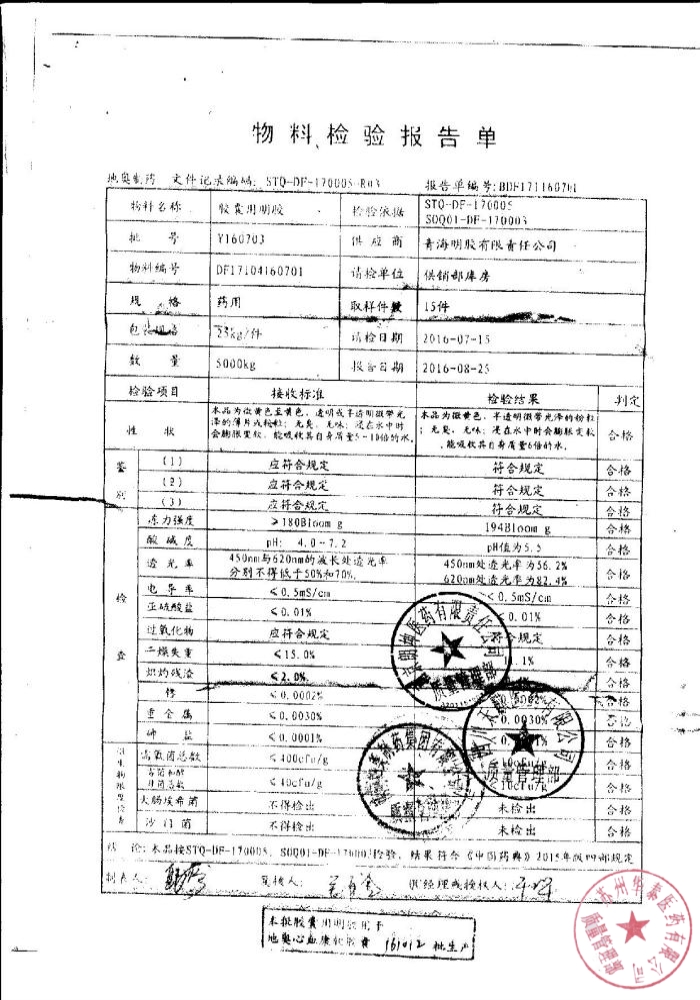 物料检验报告单
地奥制药 文件记录编码: STQ-DF-170005-R03 报告单编号:BDF171160701
物料名称 胶囊用明胶 检验依据 STQ-DF-170005
SOQ01-DF-170003
批 号 Y160703 供应商 青海明胶有限责任公司
物料编号 DF17104160701 请检单位 供销部库房
规 格 药用 取样件数 15件
包装规格 25kg/件 请检日期 2016-07-15
数 量 5000kg 报告日期 2016-08-25
检验项目 接收标准 检验结果 判定
性 状 本品为微黄色至黄色、透明或半透明微带光 本品为微黄色、半透明微带光泽的粉粒
泽的薄片或粉粒; 无臭、无味; 浸在水中时 ; 无臭、无味; 浸在水中时会膨胀变软
会膨胀变软, 能吸收其自身质量5-10倍的水。 , 能吸收其自身质量6倍的水。 合格
鉴别
(1) 应符合规定 符合规定 合格
(2) 应符合规定 符合规定 合格
(3) 应符合规定 符合规定 合格
检查
冻力强度 >180Bloom g 194Bloom g 合格
酸碱度 pH: 4.0-7.2 pH值为5.5 合格
透光率 450nm与620nm的波长处透光率 450nm处透光率为56.2%
分别不得低于50%和70%。 620nm处透光率为82.4% 合格
电导率 ≤0.5mS/cm <0.5mS/cm 合格
亚硫酸盐 ≤0.01% 0.01% 合格
过氧化物 应符合规定 符合规定 合格
干燥失重 ≤15.0% 1% 合格
炽灼残渣 ≤2.0% 合格
铬 ≤0.0002% 合格
重金属 ≤0.0030% 0.0030% 合格
砷盐 ≤0.0001% 合格
微生物限度检查
需氧菌总数 ≤400cfu/g 合格
霉菌和酵
母菌总数 ≤40cfu/g <10cfu/g 合格
大肠埃希菌 不得检出 未检出 合格
沙门菌 不得检出 未检出 合格
结 论: 本品按STQ-DF-170005、SOQ01-DF-170003检验, 结果符合《中国药典》2015年版四部规定
制表人: 复核人: 供经理或授权人:
本批胶囊用明胶用于
地奥心血康软胶囊 161012 批生产
医药有限责任公司
质量管理部
有限公司
质量管理部
制药集团
苏州华泰医药有限公司
质量管理部